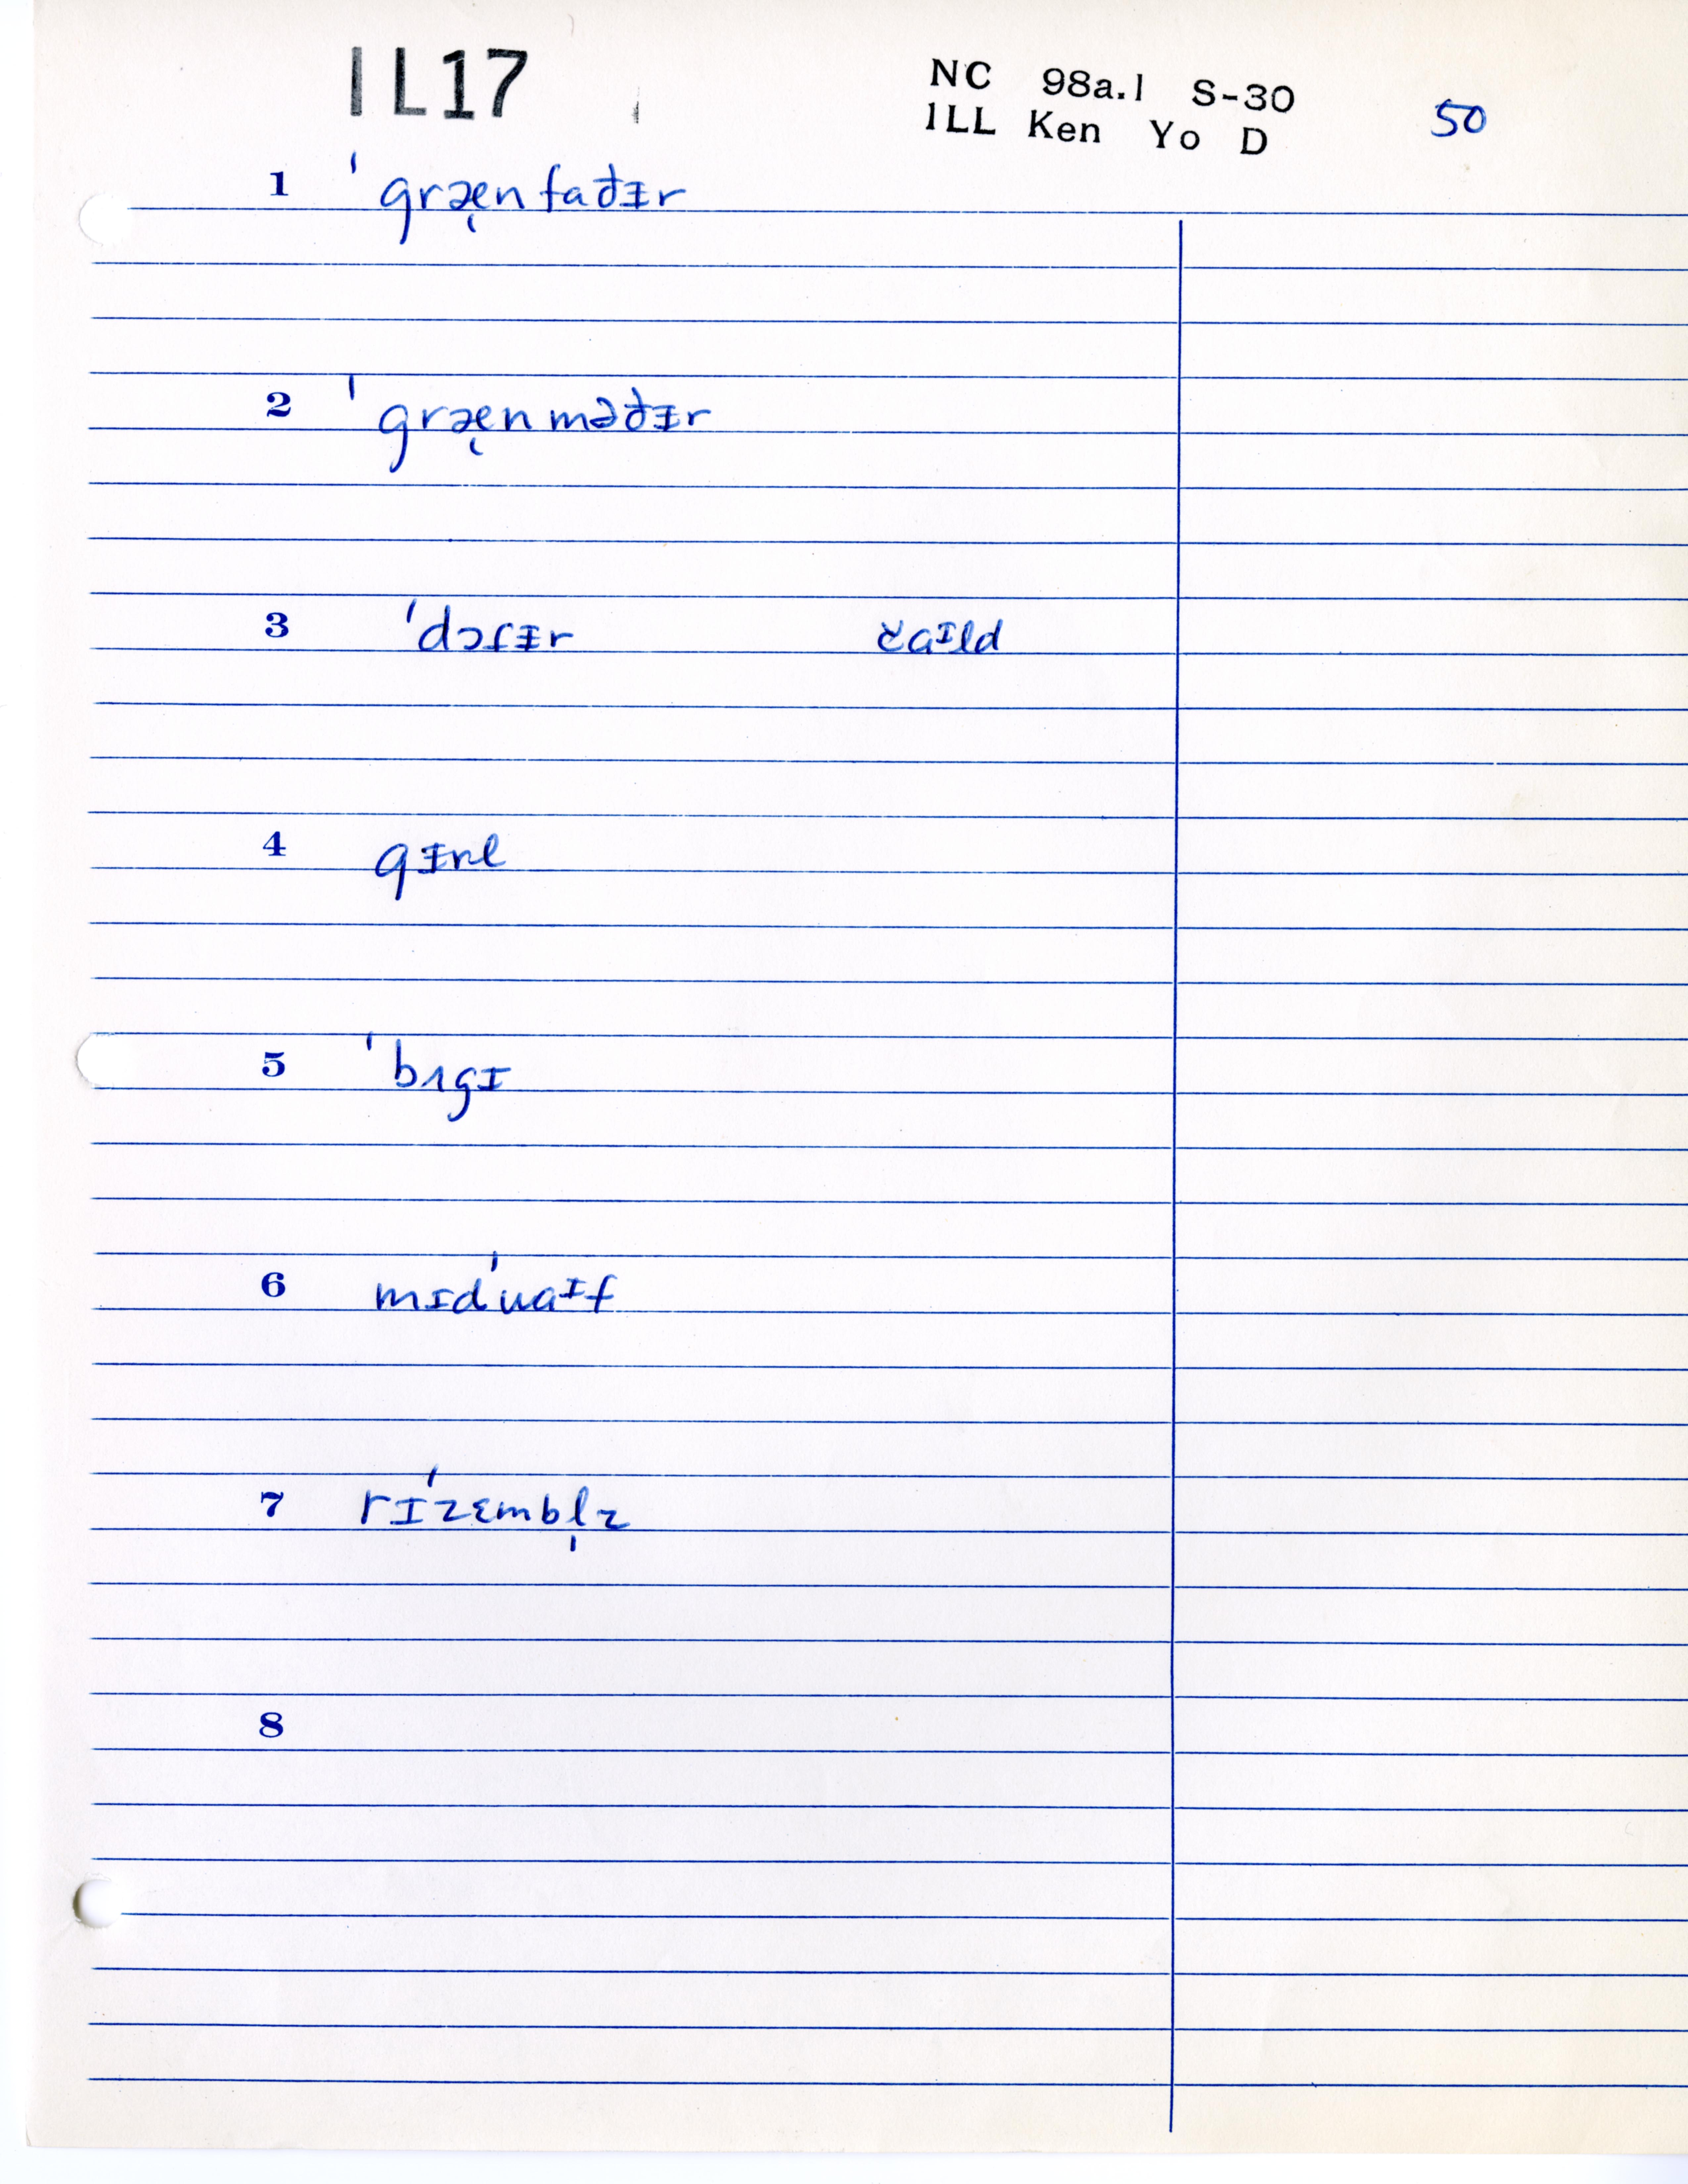 IL17
NC 98a.1 S-30
ILL Ken Yo D
50
1 ˈgræ̨nfaðᵻr
2 ˈgræ̨nməðᵻr
3 ˈdɔɾᵻr č̣aᶦld
4 gᵻrl
5 ˈbʌgɪ
6 mɪdˈwaᶦf
7 rɪˈzɛmbl̩z
8